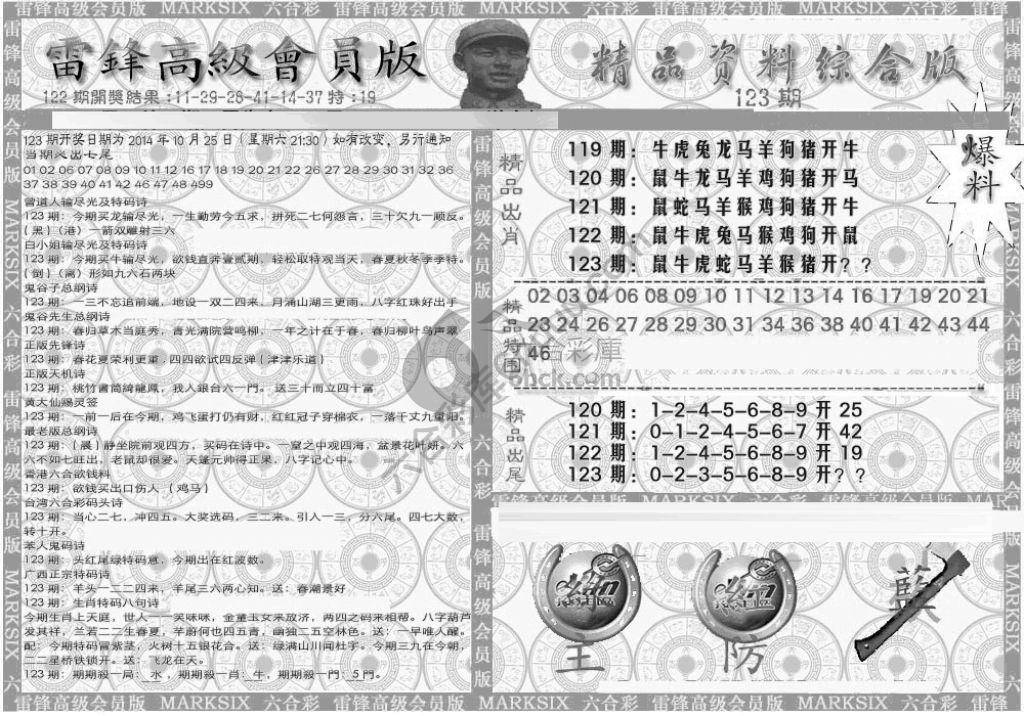 雷锋高级会员版 MARKSIX 六合彩 雷锋高级会员版 MARKSIX 六合彩 雷锋高级会员版 MARKSIX 六合彩
雷鋒高級會員版
122期開獎結果:11-29-26-41-14-37特:19
精品资料综合版
123期
爆料
123期开奖日期为2014年10月25日（星期六21:30）如有改变，另行通知
当期必出七尾
01 02 06 07 08 09 10 11 12 16 17 18 19 20 21 22 26 27 28 29 30 31 32 36
37 38 39 40 41 42 46 47 48 499
曾道人输尽光及特码诗
123期：今期买龙输尽光，一生勤劳今五求，拼死二七何怨言，三十欠九一顺反。
（黑）（港）一箭双雕射三六
白小姐输尽光及特码诗
123期：今期买牛输尽光，欲钱直奔壹贰期，轻松取特观当天，春夏秋冬季季特。
（倒）（离）形如九六石两块
鬼谷子总纲诗
123期：一三不忘追前端，地设一双二四来，月涌山湖三更雨，八字红珠好出手
鬼谷先生总纲诗
123期：春归草木当庭秀，青光满院营鸣柳，一年之计在于春，春归柳叶鸟声翠
正版先锋诗
123期：春花夏荣利更重，四四欲试四反弹（津津乐道）
正版天机诗
123期：桃竹書筒綺龍鳳，我入銀台六一門。送三十而立四十富
黄大仙赐灵签
123期：一前一后在今期，鸡飞蛋打仍有财，红红冠子穿棉衣，一落千丈九重阳。
最老版总纲诗
123期：（晨）静坐院前观四方，买码在诗中。一窒之中观四海，盆景花叶妍。六
六不如七旺出，老鼠却很爱。天蓬元帅得正果，八字记心中。
香港六合欲钱料
123期：欲钱买出口伤人（鸡马）
台湾六合彩码头诗
123期：当心二七，冲四五。大奖选码，三二来。引人一三，分六尾。四七大数，
转十开。
本人鬼码诗
123期：头红尾绿特码意，今期出在红波数。
广西正宗特码诗
123期：羊头一二二四来，羊尾三六两心知。送：春潮景好
123期：生肖特码八句诗
今期生肖上天庭，世人一一笑咪咪，金童玉女来放济，两四之码来相帮。八字葫芦
发其祥，兰若二二生春夏，芊蔚何也四五青，幽独二五空林色。送：一早唯人醒。
配：今期特码冒紫茎，火树十五银花合。送：绿满山川闻杜宇。今期三九在今朝，
二二星桥铁锁开。送：飞龙在天。
123期：期期殺一局：水，期期殺一肖：牛，期期殺一門：5門。
精品出肖
119期：牛虎兔龙马羊狗猪开牛
120期：鼠牛龙马羊鸡狗猪开马
121期：鼠蛇马羊猴鸡狗猪开牛
122期：鼠牛虎兔马猴鸡狗开鼠
123期：鼠牛虎蛇马羊猴猪开？？
精品特围
02 03 04 06 08 09 10 11 12 13 14 15 16 17 19 20 21
23 24 26 27 28 29 30 31 34 36 38 40 41 42 43 44
46
精品出尾
120期：1-2-4-5-6-8-9开25
121期：0-1-2-4-5-6-7开42
122期：1-2-4-5-6-8-9开19
123期：0-2-3-5-6-8-9开？？
主
防
雷锋高级会员版 MARKSIX 六合彩 雷锋高级会员版 MARKSIX 六合彩 雷锋高级会员版 MARKSIX 六合彩